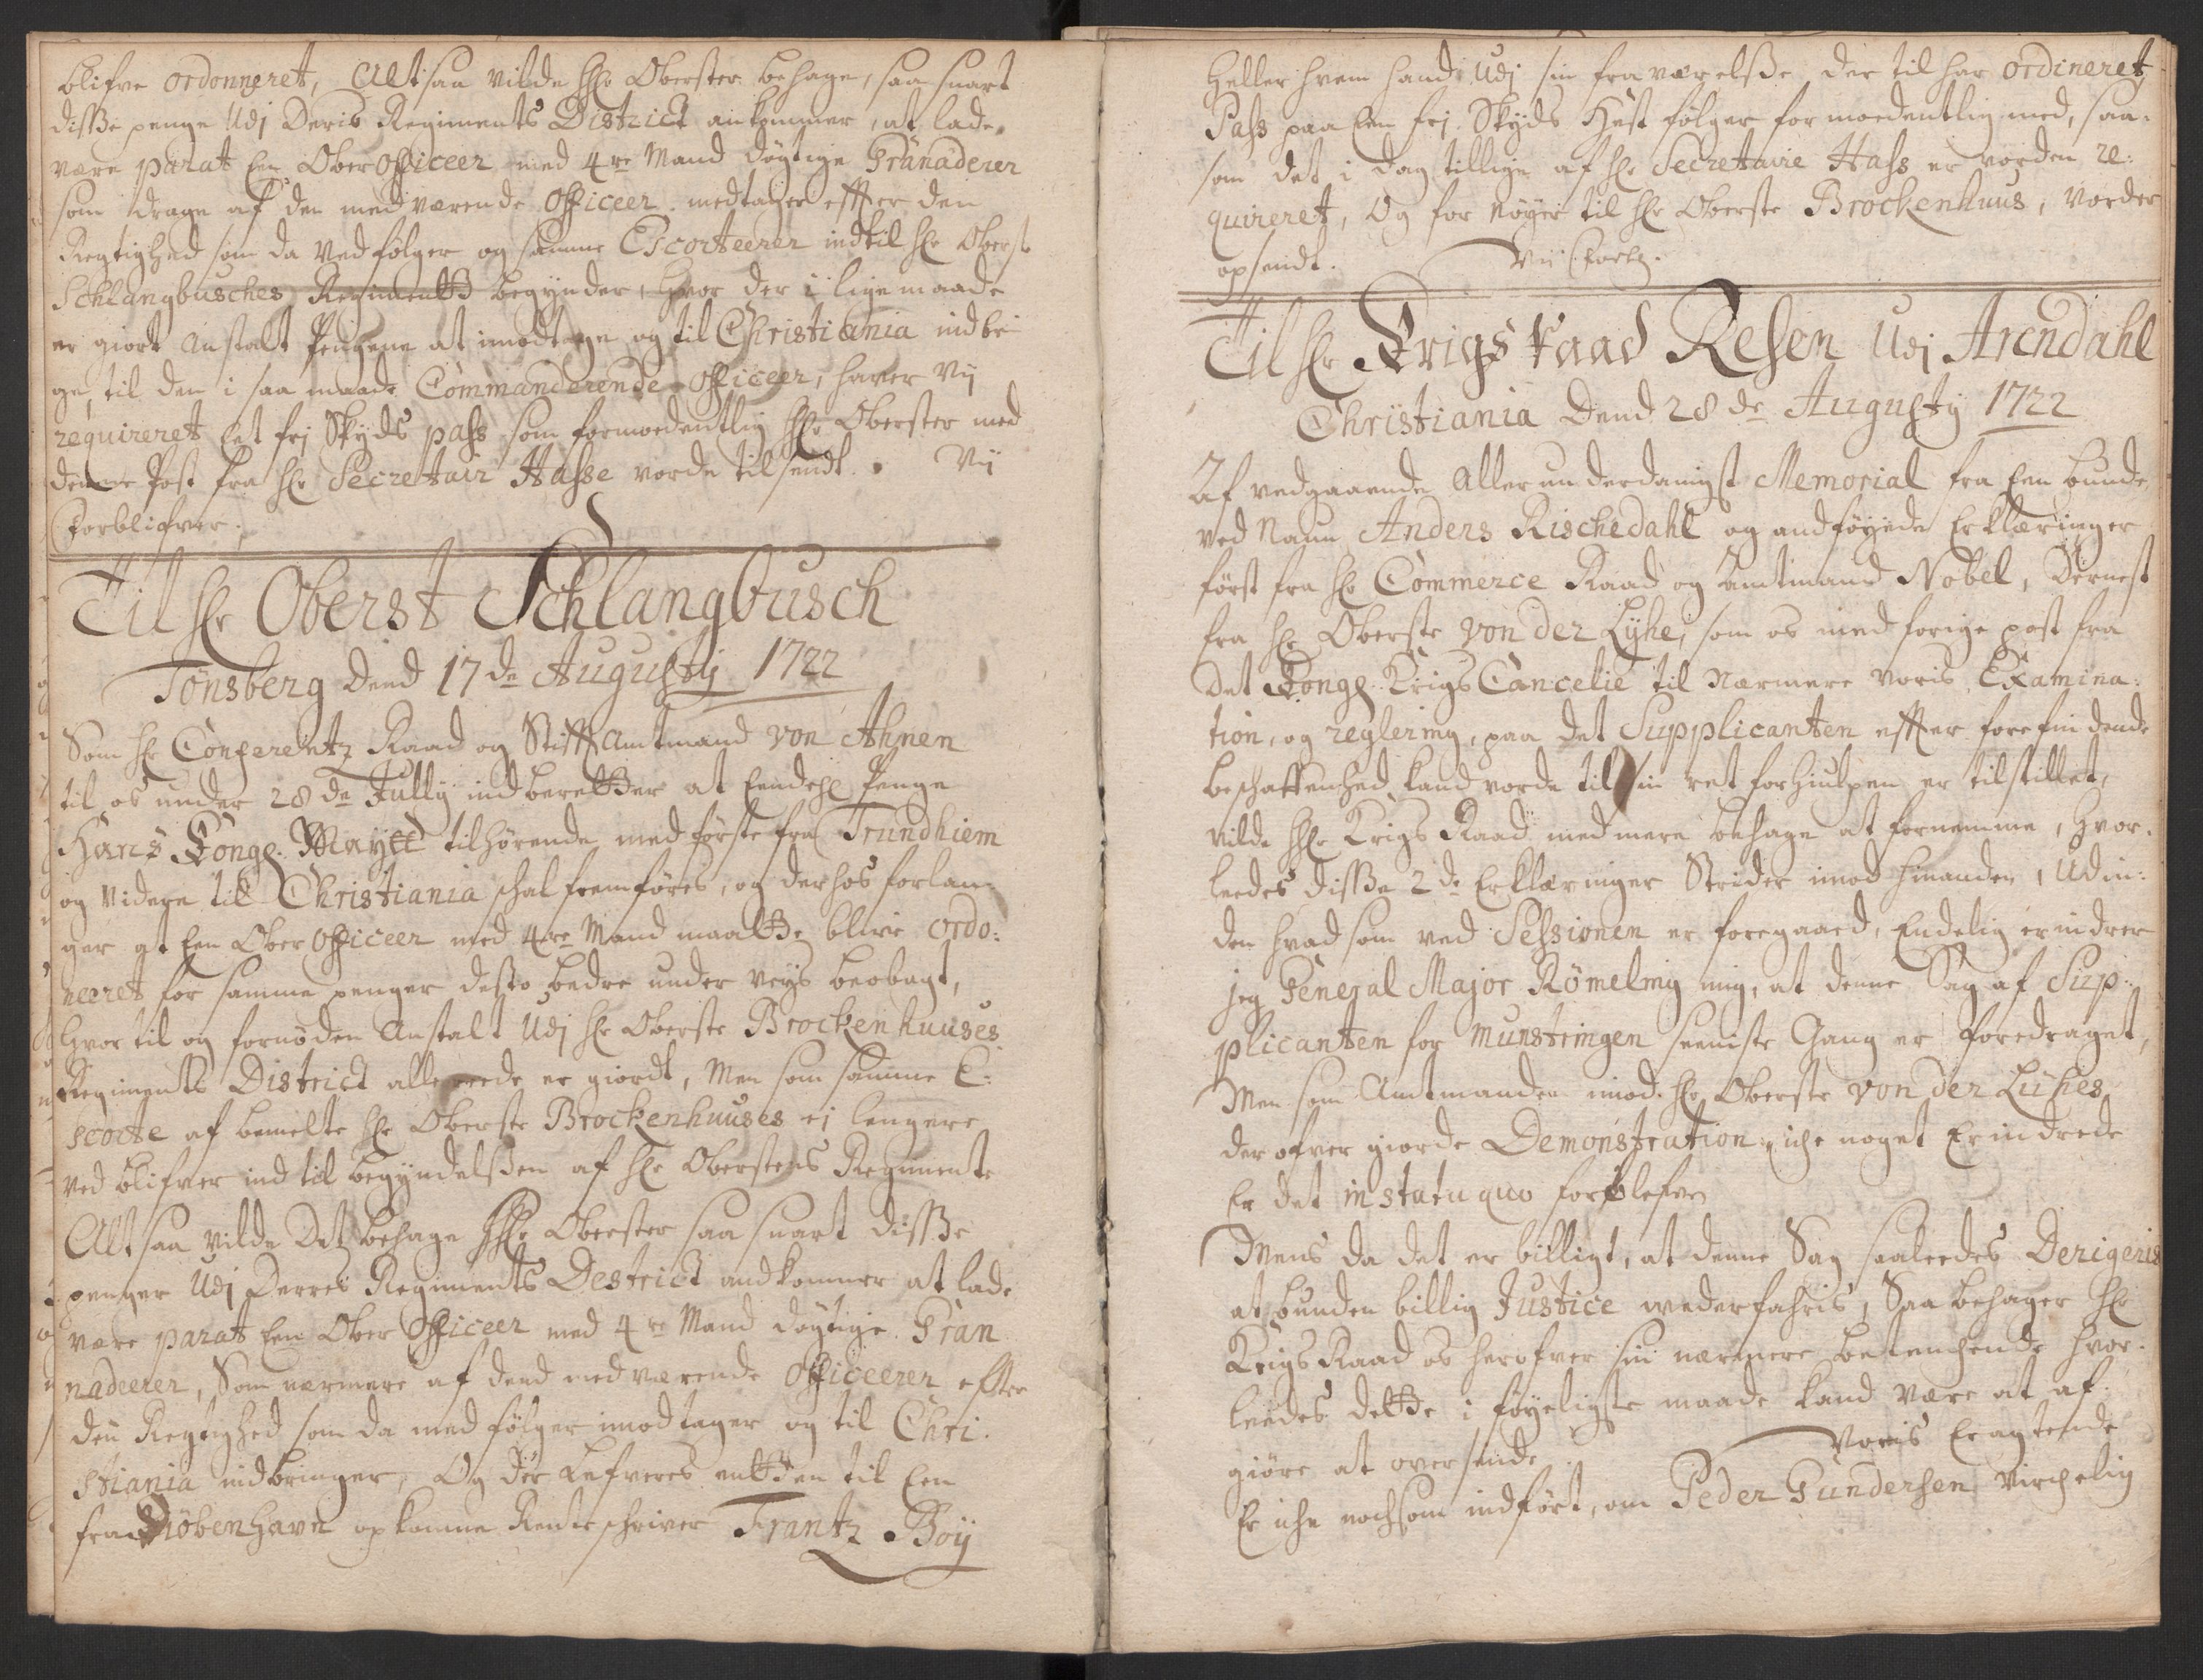 blifve ordonneret, Altsaa vilde hr Oberster behage, saa snart
disse penge Udj Deris Regiments District ankommer, at lade
være parat Een Ober Officeer med 4re Mand døgtige Granaderer
som drage af den medværende Officeer medtager effter den
Regtighed som da Vedfølger og samme Escorteerer indtil hr Oberst
Schlangbusches Regimentte begynder, hvor der i lige maade
er giort Anstalt Pengene at imodtage og til Christiania indbe
ge, til den i saa maade Commanderende Officeer, haver Vij
requireret Et frj Skyds pass som formodentlig hr Oberster med
denne Post fra hr Secretair Hasse vorde tilsendt. Vij
Forblifver.
Til hr Oberst Schlangbusch
Tønsberg Dend 17de Augustij 1722
Som hr Conferentz Raad og Stifft Amtmand von Ahnen
til os under 28de Jullij indberetter at Eendehl Penge
Hans Kongl. Maytt tilhørende med første fra Trundhiem
og Videre til Christiania schal fremføres, og derhos forlan
ger at Een Ober Officeer med 4re Mand maatte blive ordo:
neeret for samme penger desto bedre under veys beobagt,
hvor til og fornøden Anstalt Udj hr Oberste Brockenhuuses
Regiments District allereede er giordt, Men som samme E:
scorte af bemelte hr Oberste Brockenhuuses ej lengere
ved blifver ind til begyndelssen af hr Oberstens Regimente
Alt saa vilde Det behage hr Oberster saa snart disse
penger Udj Derres Regiments Destrict andkommer at lade
være parat Een Ober Officeer med 4re Mand døgtige Gran
nadeerer, Som nærmere af dend medværende Officeerer effter
den Regtighed som da med følger imodtager og til Chri:
stiania indbringer, Og der Lefveres entten til Een
fra Kiøbenhavn opkomne Renteschriver Frantz Boÿ
Heller hvem hand Udj sin fraværelsse der til har ordineret
Pass paa Een frj Skyds Hæst følger formodentlig med, saa:
som det i dag tillige af hr Secretaire Hass er vorden re:
quireret, Og for nøyer til hr Oberste Brockenhuus, vorder
opsendt. Vij Forbl.
Til hr Krigs Raad Resen Udj Arendahl
Christiania Dend 28de Augustij 1722
Af vedgaaende Allerunderdanigst Memorial fra Een bunde
ved Naun Anders Rischedahl og andføyede Erklæringer
først fra hr Commerce Raad og Amtmand Nobel, dernest
fra hr Oberste von der Lyhe, som os med forige post fra
Det Kongl. Krigs Cancelie til Nærmere Voris Examina:
tion, og reglering, paa det Supplicanten effter forefindende
beschaffenhed kand vorde til sin ret forhiulpen er tilstillet,
vilde hr Krigs Raad med mere behage at fornemme, hvor:
leedes disse 2de Erklæringer Strider imod hinanden, Udin:
den hvad som ved Sessionen er foregaaed, Endelig erindrer
jeg General Major Rømeling mig, at denne Sag af Sup:
plicanten for Munstringen seeniste Gang er foredraget,
Men som Amtmanden imod hr Oberste von der Lühes
der ofver giorde Demonstration iche noget Erindrede
Er det in statu quo forblefven
Mens da det er billigt, at denne Sag saaleedes Derigeris
at bunden billig Justice wederfahris, Saa behager hr
Krigs Raad os herofver sin nærmere betenchende hvor:
leedes dette i føyeligste maade kand være at af:
giøre at oversende.
Voris Eragtende
Er iche nochsom indført, om Peder Gundersen Virchelig